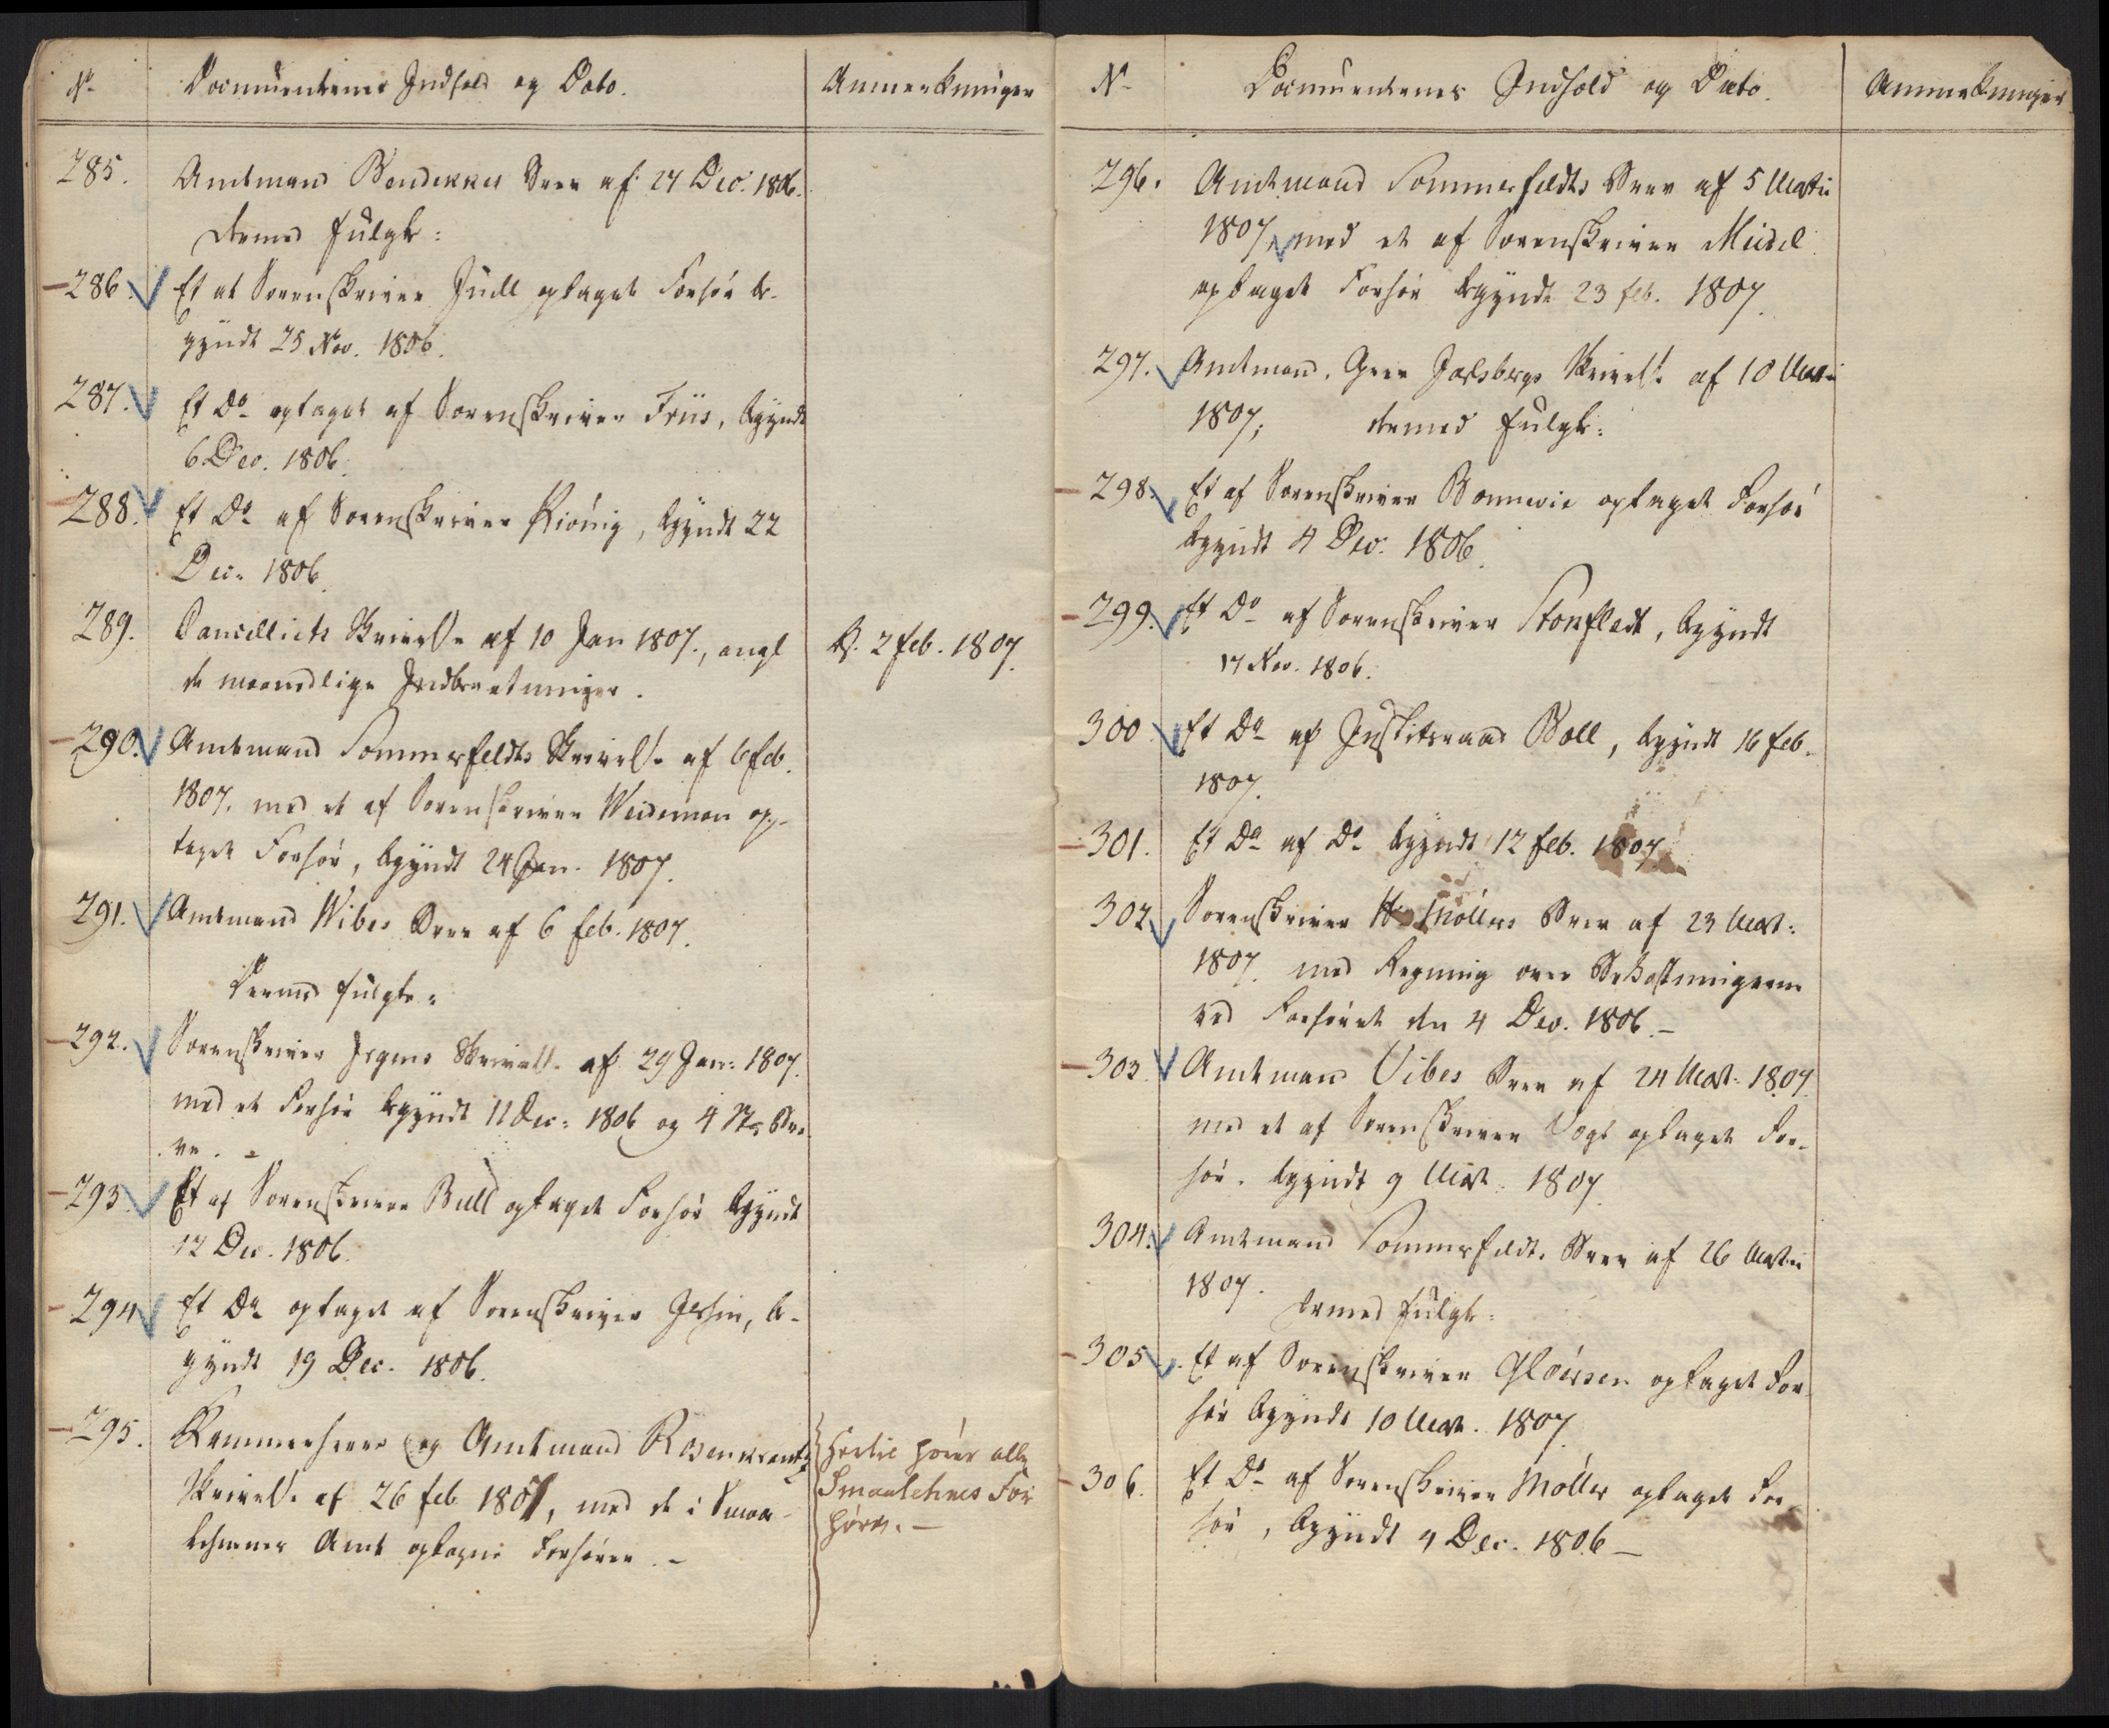 No
Documenternes Indhold og Dato.
Anmerkninger
285.
Amtmand Bendekes Brev af 27 Dec. 1806.
dermed fulgte:
286.
Et af Sorenskriver Juell optaget Forhør be-
gyndt 25 Nov. 1806.
287.
Et Do optaget af Sorenskriver Friis, begyndt
6 Dec. 1806.
288.
Et Do af Sorenskriver Kiönig, begyndt 22
Dec. 1806.
289.
Cancelliets Skrivelse af 10 Jan 1807., ang
de maanedlige Indberetninger.
B. 2 feb. 1807.
290.
Amtmand Sommerfeldts Skrivelse af 6 feb.
1807. med et af Sorenskriver Weideman op-
taget Forhør, begyndt 24 Jan. 1807.
291.
Amtmand Wibes Brev af 6 feb. 1807.
Dermed fulgte:
292.
Sorenskriver Irgens Skrivelse af 29 Jan: 1807.
med et Forhør begyndt 11 Dec: 1806 og 4 St. Bre-
ve.
293.
Et af Sorenskriver Bull optaget Forhør begyndt
12 Dec. 1806.
294
Et Do optaget af Sorenskriver Jersin, be-
gyndt 19 Dec. 1806.
295.
Kammerherre og Amtmand Rosenkrantz
Skrivelse af 26 feb. 1807, med de i Smaa-
lehnenes Amt optagne Forhører. -
Hertil hører alle
Smaalehnes For
hører. -
No
Documenternes Indhold og Dato.
Anmerkninger
296.
Amtmand Sommerfeldts Brev af 5 Martii
1807, med et af Sorenskriver Meidel
optaget Forhør begyndt 23 feb. 1807.
297.
Amtmand, Grev Jarlsbergs Skrivelse af 10 Mart.
1807; dermed fulgte:
298.
Et af Sorenskriver Bonnevie optaget Forhør
begyndt 4 Dec. 1806.
299.
Et Do af Sorenskriver Stockfledt, begyndt
17 Nov. 1806.
300
Et Do af Justitsraad Boll, begyndt 16 feb.
1807.
301.
Et Do af Do begyndt 12 feb. 1807
302
Sorenskriver H Møllers Brev af 23 Mart:
1807. med Regning over Bekostningerne
ved Forhøret den 4 Dec. 1806. -
303.
Amtmand Vibes Brev af 24 Mart: 1807.
med et af Sorenskriver Vogt optaget For-
hør. begyndt 9 Mart. 1807
304.
Amtmand Sommerfeldts Brev af 26 Martii
1807.
dermed fulgte:
305
Et af Sorenskriver Gløersen optaget For-
hør begyndt 10 Mart. 1807
306.
Et Do af Sorenskriver Møller optaget For-
hør, begyndt 4 Dec. 1806 -